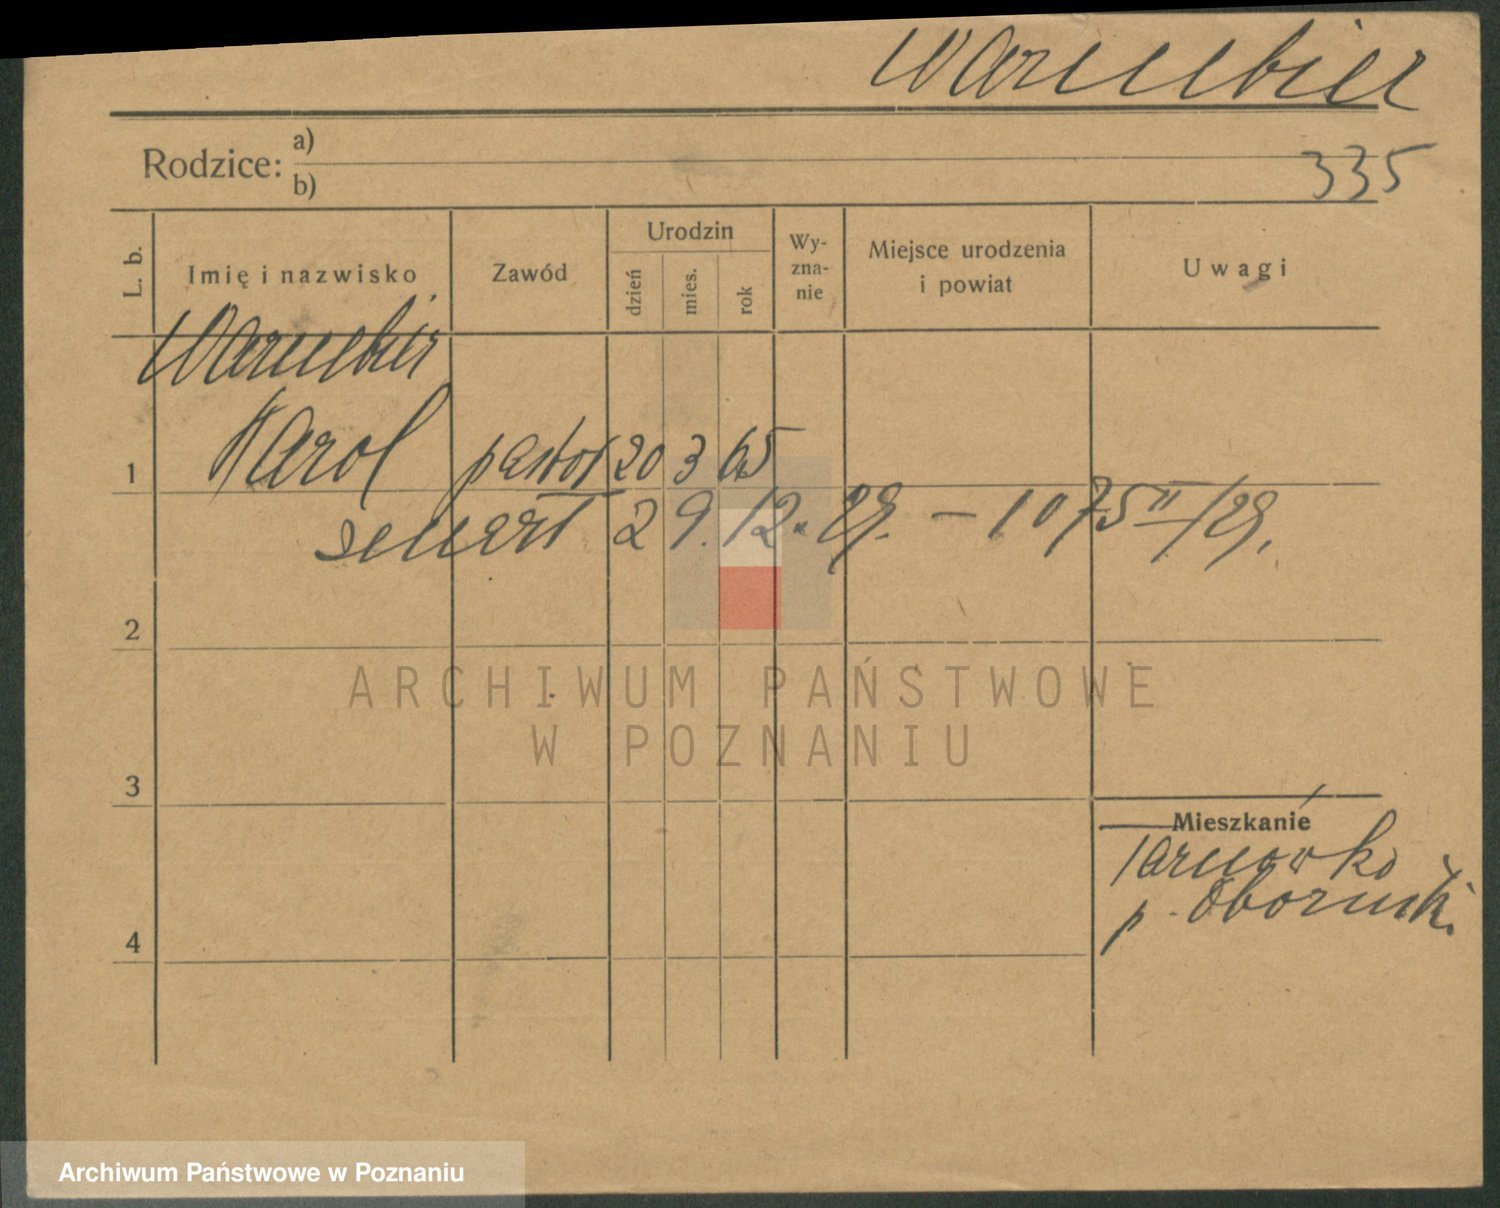 Warmbier
335
Rodzice: a)
b)
L. b.
Imię i nazwisko
Zawód
Urodzin
dzień
mies.
rok
Wy-
zna-
nie
Miejsce urodzenia
i powiat
Uwagi
Warmbier
1 Karol pastor 20 3 65
zmarł 29. 12. 29. – 1075 II/29.
2
3
4
Mieszkanie
Tarnówko
p. Obornicki
ARCHIWUM PAŃSTWOWE
W POZNANIU
Archiwum Państwowe w Poznaniu